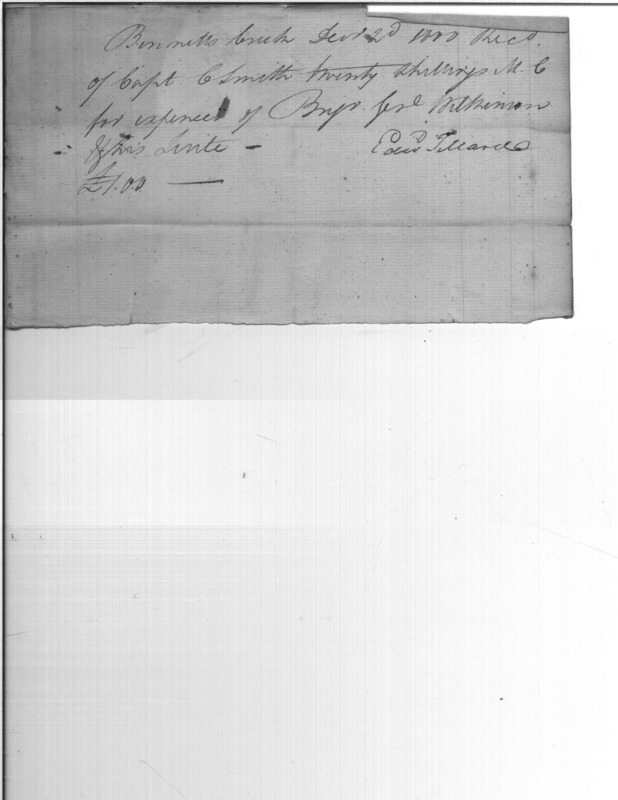 Bennetts Creek Decr 2d 1800 Recd.
of Capt C Smith twenty Shillings M. C
for expences of Brigr. Genl. Wilkinson
& his Suite - Edwd. Tillard
£1.0.0